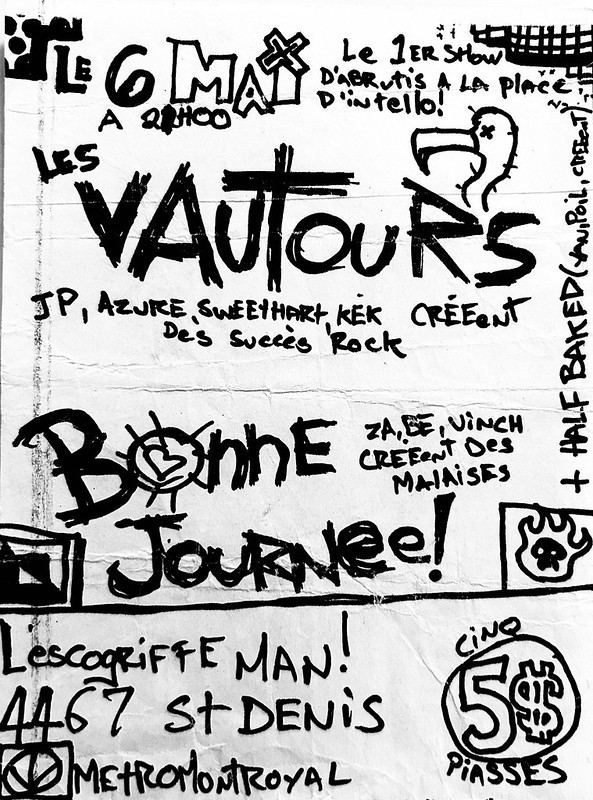 LE 6 MAi
A 21H00
Le 1ER SHOW
D'ABRUTIS A LA PLACE
D'intello!
LES
VAUTOURS
JP, AZURE, SWEETHART, KEK CRÉEENT
Des succès Rock
BONNE
JOURNée!
ZA, BÉ, VINCH
CREEENT Des
MALAISES
+ HALF BAKED (VANIPOIL, CRÉENT)
L'escogRiFFE MAN!
4467 St DENiS
METROMONTROYAL
CiNQ
5$
PiASSES